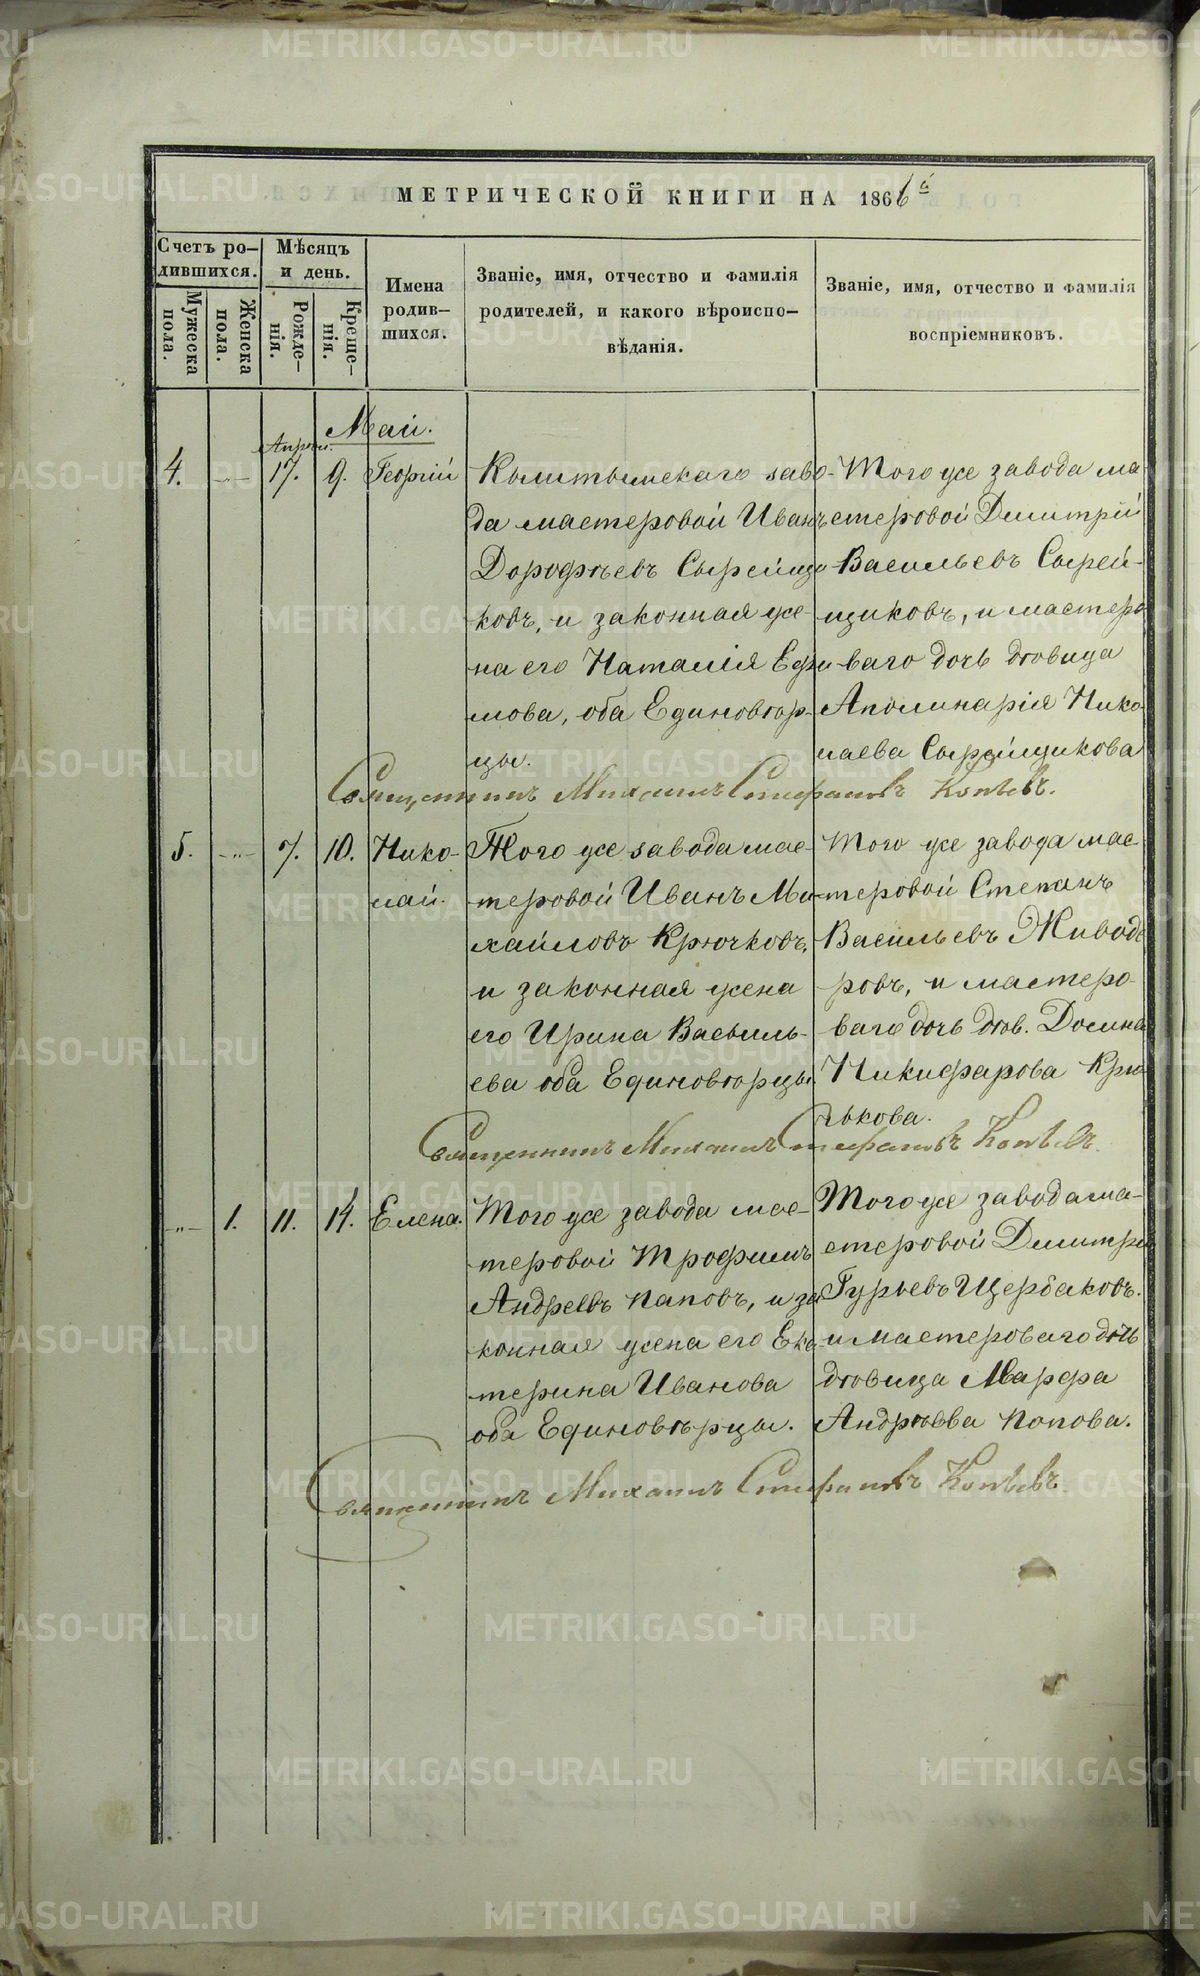 МЕТРИЧЕСКОЙ КНИГИ НА 1866й
Счетъ ро-
дившихся.
Мужеска
пола.
Женска
пола.
Мѣсяцъ
и день.
Рожде-
нія.
Креще-
нія.
Имена
родив-
шихся.
Званіе, имя, отчество и фамилія
родителей, и какого вѣроиспо-
вѣданія.
Званіе, имя, отчество и фамилія
воспріемниковъ.
Май.
4. -"- 17. 9. Георгій
заво-
да мастеровой Иванъ
Дорофѣевъ Сырейщи
ковъ, и законная же-
на его Наталія Ефи
мова, оба Единовѣр-
цы.
Того же завода ма
стеровой Димитрій
Васильевъ Сырей-
щиковъ, и мастеро
ваго дочь дѣвица
Аполинарія Нико
лаева Сырейщикова
Священникъ Михаилъ Стефановъ Копѣевъ.
5. -"- 7. 10. Нико-
лай.
Того же завода мас-
теровой Иванъ Ми-
хайловъ Крючковъ,
и законная жена
его Ирина Василь-
ева оба Единовѣрцы.
Того же завода мас-
теровой Степанъ
Васильевъ Живоде
ровъ, и мастеро-
ваго дочь дѣв. Домна
Никифарова Крю
чькова.
Священникъ Михаилъ Стефановъ Копѣевъ.
-"- 1. 11. 14. Елена.
Того же завода мас-
теровой Трофимъ
Андреевъ Паповъ, и за
конная жена его Ека
терина Иванова
оба Единовѣрцы.
Того же завода ма-
стеровой Димитрій
Гурьевъ Щербаковъ.
и мастероваго дочь
дѣвица Марфа
Андрѣева Попова.
Священникъ Михаилъ Стефановъ Копѣевъ.
METRIKI.GASO-URAL.RU